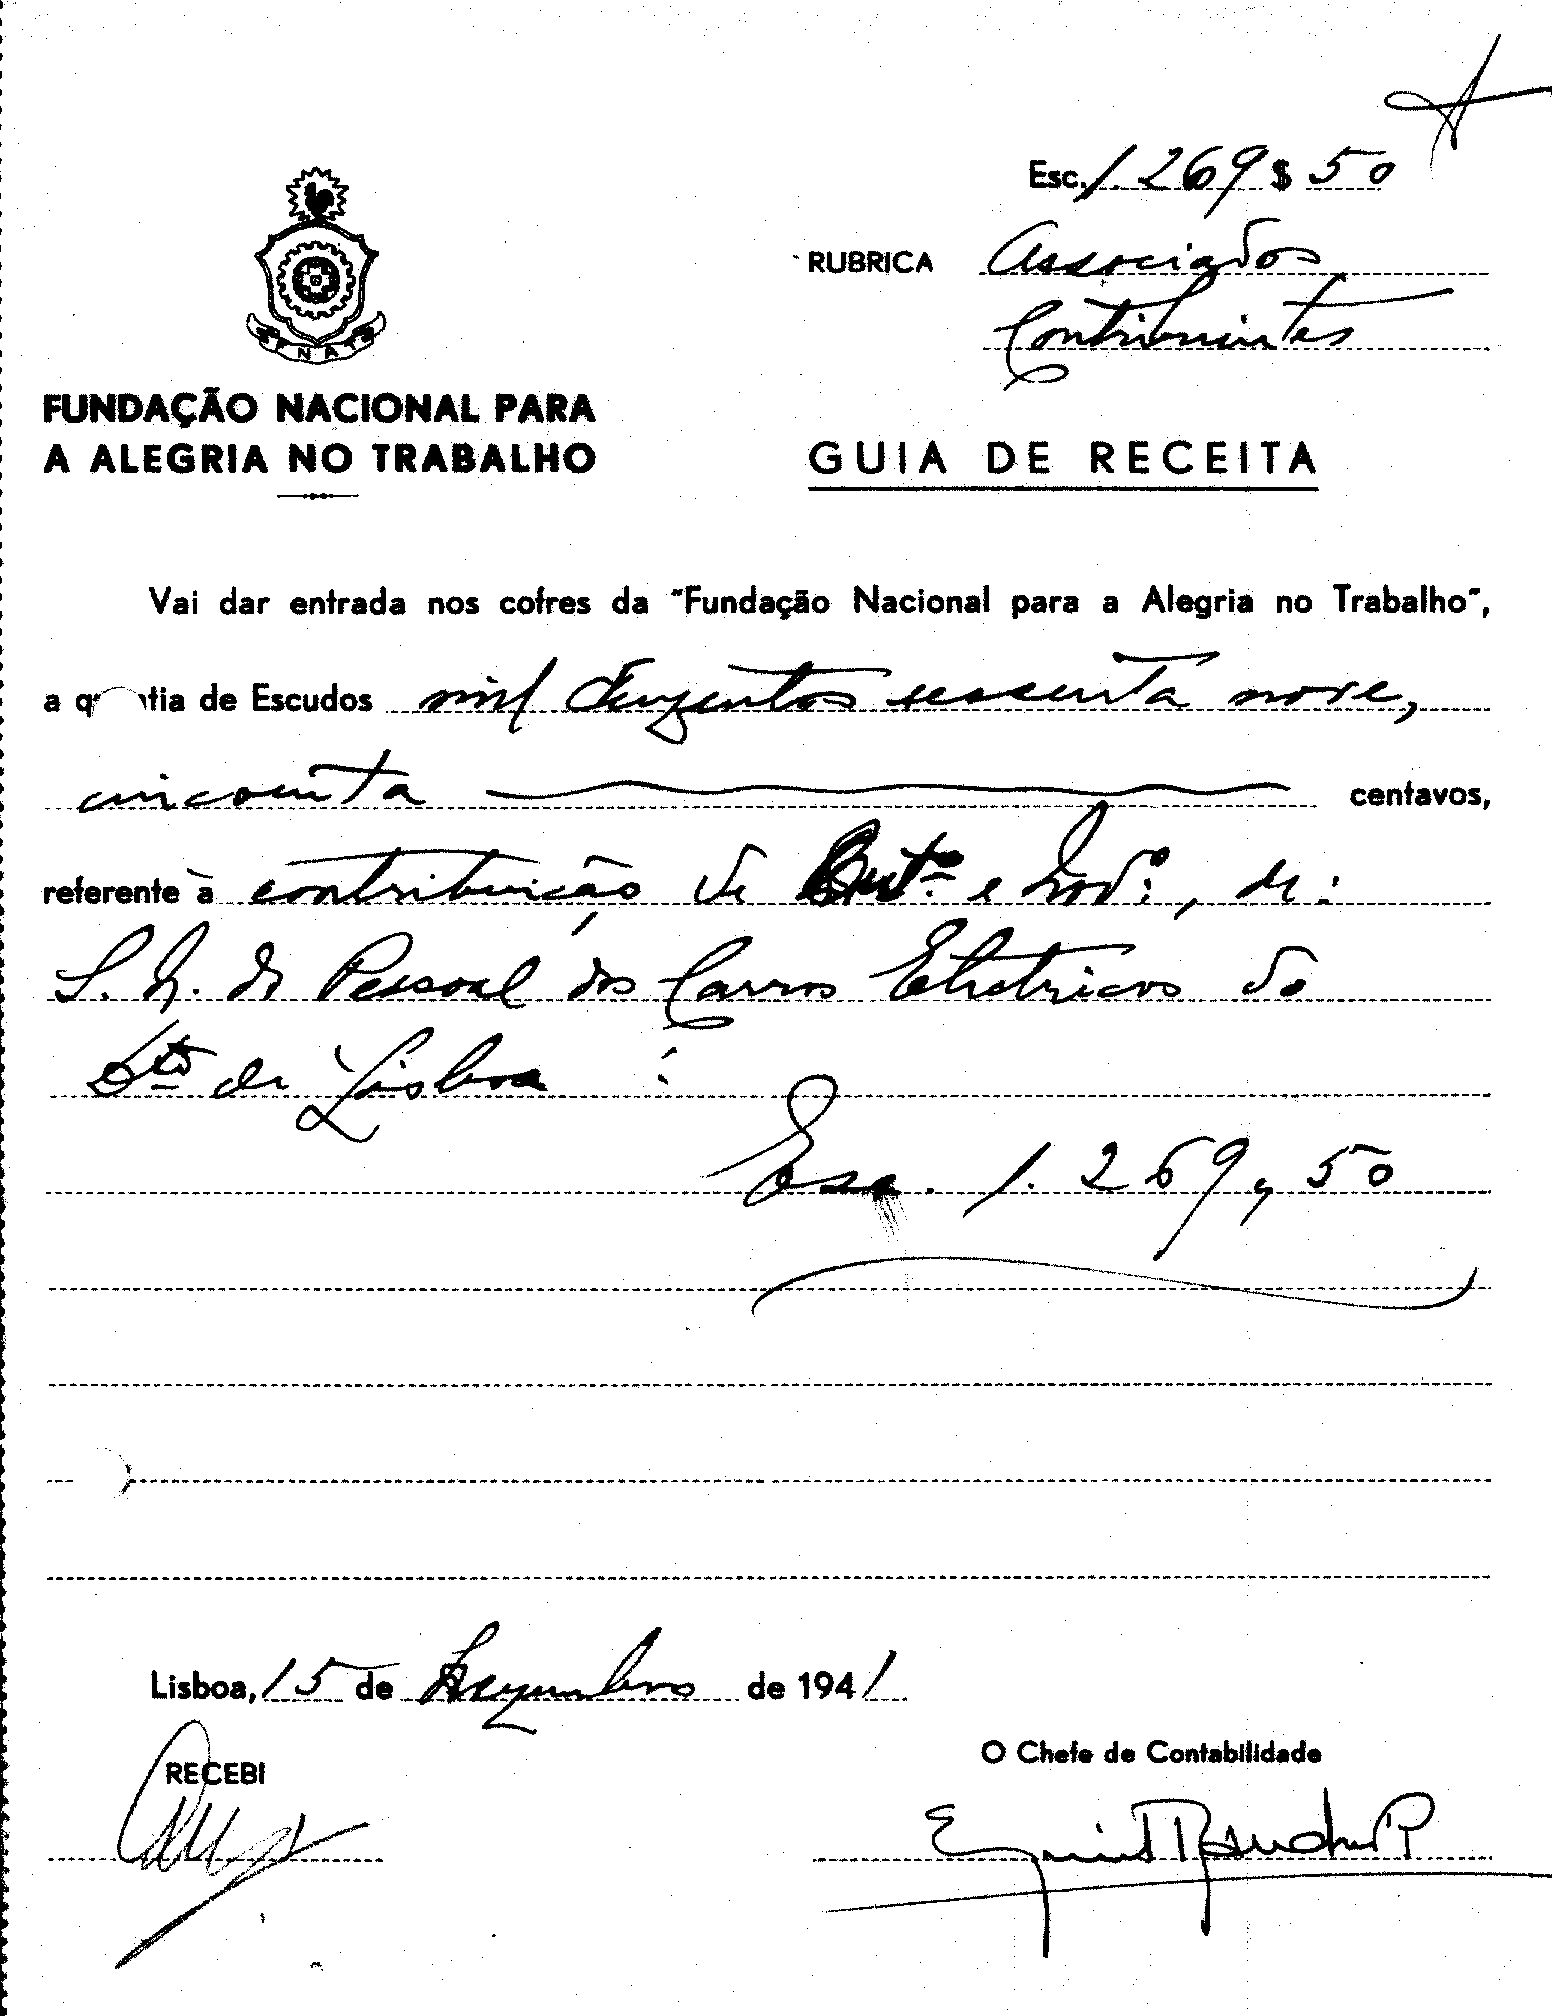 Esc. 1.269 $ 50
RUBRICA Associados
Contribuintes
F N A T
FUNDAÇÃO NACIONAL PARA
A ALEGRIA NO TRABALHO
GUIA DE RECEITA
Vai dar entrada nos cofres da "Fundação Nacional para a Alegria no Trabalho",
a quantia de Escudos mil duzentos sessenta nove,
cincoenta centavos,
referente à contribuição de Out.º e Nov.º, de:
S. N. do Pessoal dos Carros Eletricos do
Dto de Lisboa :
Esc. 1.269,50
Lisboa, 15 de Dezembro de 1941
RECEBI
O Chefe de Contabilidade